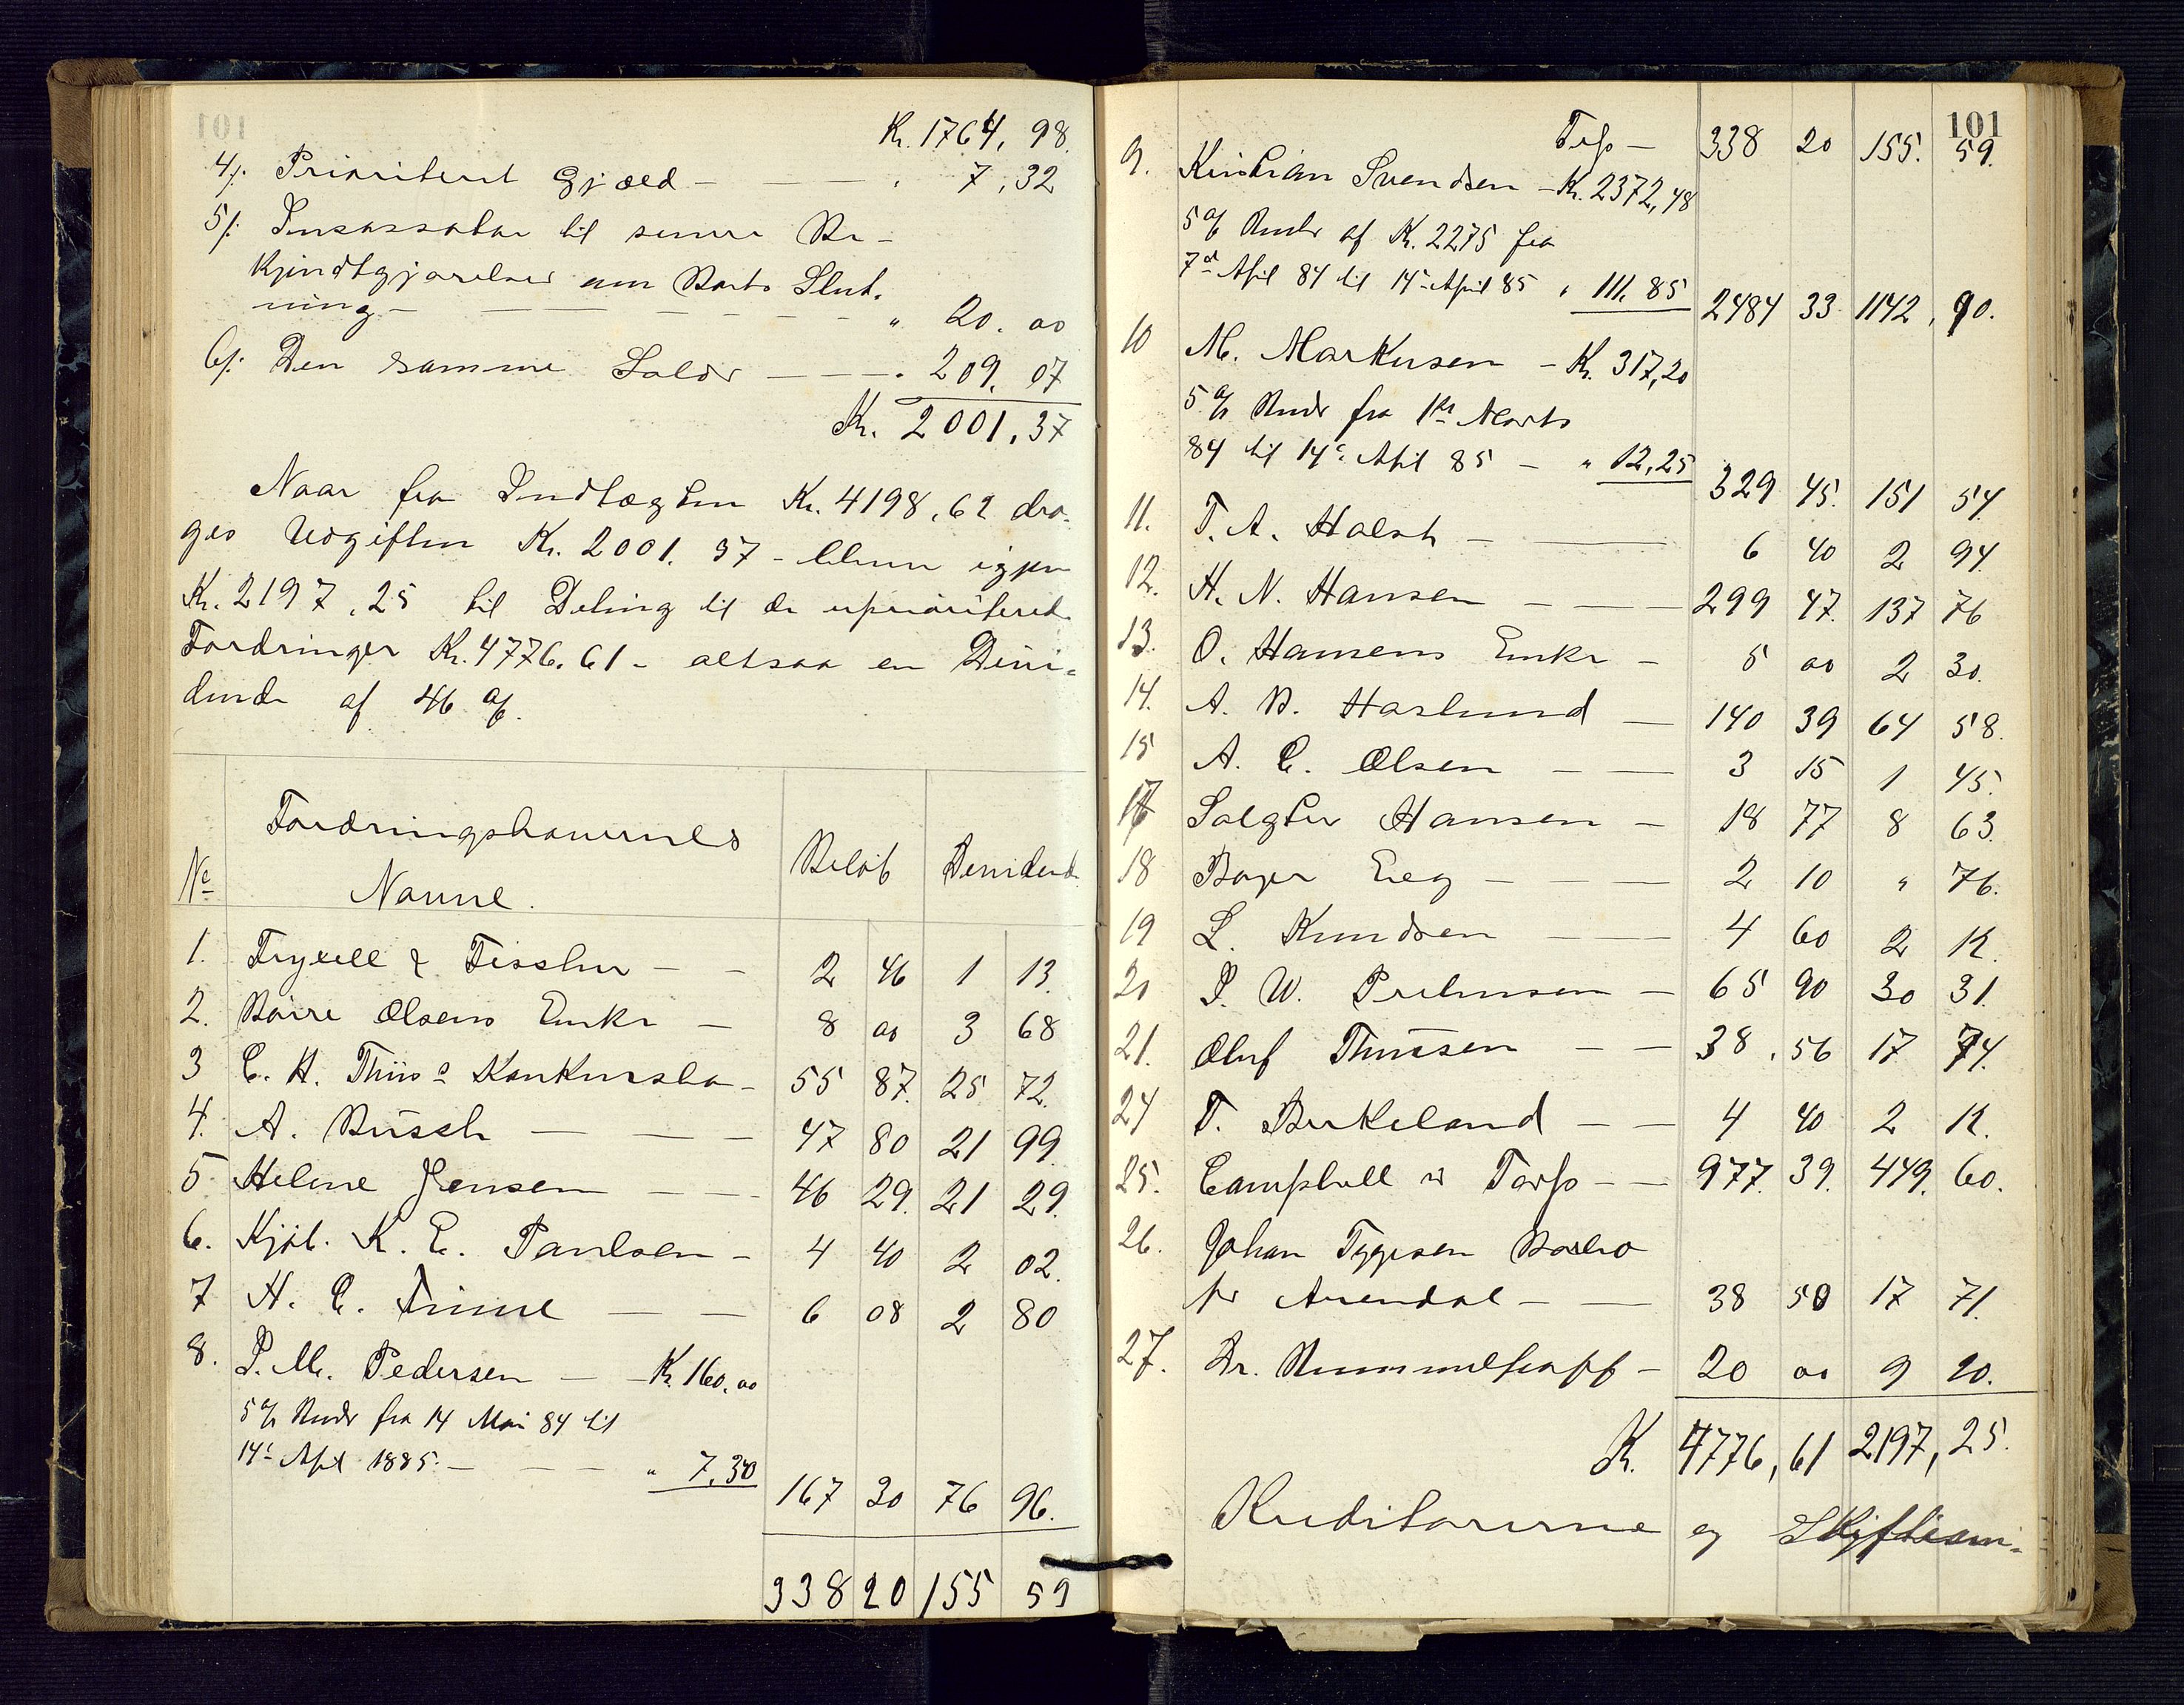 Kr. 1764, 98.
4/. Prioriteret Gjæld — — . 7, 32
5/. Incassator til senere Be-
kjendtgjørelser om Boets Slut-
ning — — — — — " 20. 00
6/. Den samme Salær — — . 209. 07
Kr. 2001, 37
Naar fra Indtægten Kr. 4198, 62 dra-
ges Udgiften Kr. 2001. 37 - bliver igjen
Kr. 2197, 25 til Deling til de uprioriterede
Fordringer Kr. 4776. 61 - altsaa en Divi-
dende af 46 %.
No Fordringshavernes Navne. Beløb Dividende
1. Fryxell & Fisscher — — 2 46 1 13.
2. Børre Olsens Enke — 8 00 3 68
3 C. H. Thiis's Konkursbo - 55 87. 25 72.
4. A. Busch — — — 47 80 21 99.
5 Helene Jensen — — - 46 29. 21 29.
6. Kjøb. K. E. Paulsen - 4 40 2 02.
7 H. C. — — 6 08 2 80
8. P. M. Pedersen — - Kr. 160. 00
5 % Rente fra 14 Mai 84 til
14de Apl 1885. — — — " 7, 30
167 30 76 96.
338 20 155 59
101
Trsp — 338 20 155. 59.
9. Kristian Svendsen - Kr. 2372, 48
5 % Rente af Kr. 2275 fra
7de April 84 til 14de April 85 , 111. 85
2484 33 1142, 90.
10 M. Markusen - Kr. 317, 20
5 % Rente fra 1ste Marts
84 til 14de April 85 — " 12, 25
329 45. 151 54.
11. T. A. Holst — — 6 40 2 94.
12. H. N. Hansen — — — 299 47. 137 76
13. O. Hansens Enke — 5 00 2 30.
14. A. B. Haslund — 140 39 64 58.
15 A. C. Olsen — — 3 15 1 45.
17 Salgter Hansen — 18 77 8 63.
18 Bager Eeg — — — 2 10 " 76.
19 L. Knudsen — — 4 60 2 12.
20 P. W. Prebensen — 65 90 30 31.
21. Oluf Thuesen — — 38, 56 17 74.
24 T. Birkeland — — 4 40 2 12.
25. Campbell & — — 977. 39. 449. 60.
26. Johan Tygesen
pr Arendal — — 38 50 17 71.
27. Dr. Rummelhoff — 20 00 9 20.
K. 4776, 61 2197, 25.
Kreditorerne og Skiftesam-